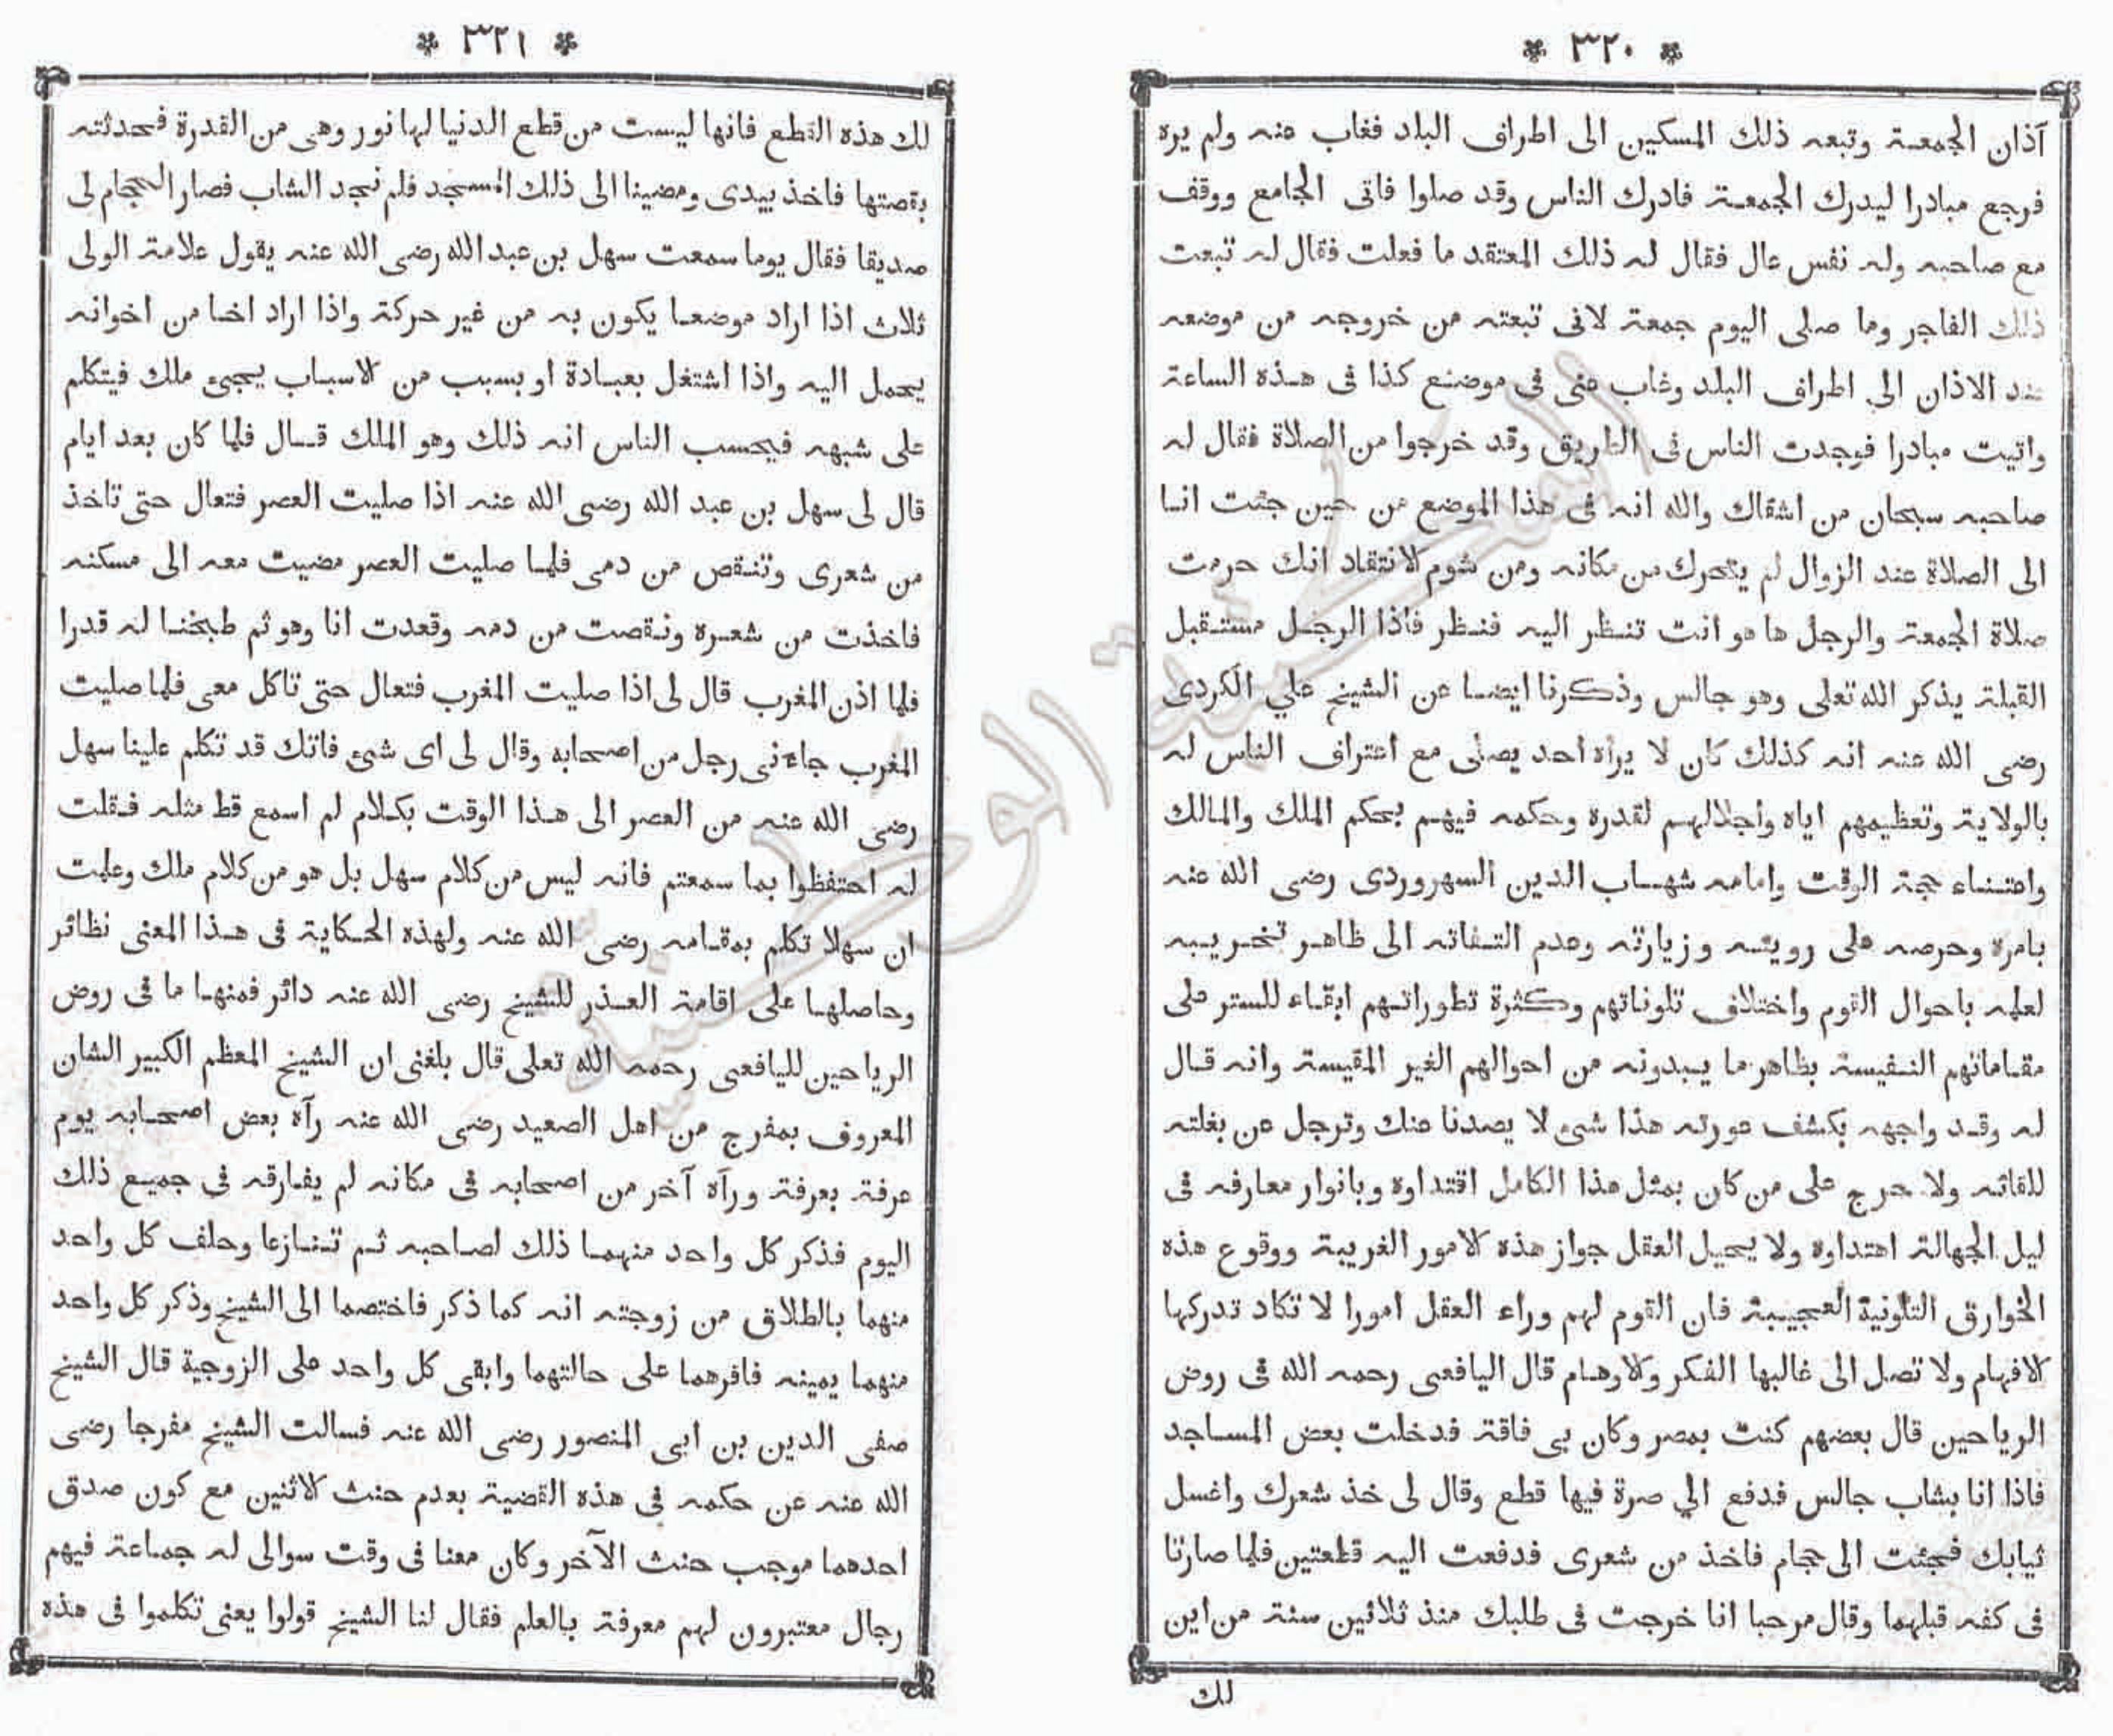 * ٣٢٠ *
آذان الجمعة وتبعه ذلك المسكين الى اطراف البلد فغاب عنه ولم يره
فرجع مبادرا ليدرك الجمعة فادرك الناس وقد صلوا فاتى الجامع ووقف
مع صاحبه وله نفس عال فقال له ذلك المعتقد ما فعلت فقال له تبعت
ذلك الفاجر وما صلى اليوم جمعة لانى تبعته من خروجه من موضعه
عند الاذان الى اطراف البلد وغاب عنى فى موضع كذا فى هذه الساعة
واتيت مبادرا فوجدت الناس فى الطريق وقد خرجوا من الصلاة فقال له
صاحبه سبحان من اشقاك والله انه فى هذا الموضع من حين جئت انا
الى الصلاة عند الزوال لم يتحرك من مكانه ومن شوم الانتقاد انك حرمت
صلاة الجمعة والرجل ها هو انت تنظر اليه فنظر فاذا الرجل مستقبل
القبلة يذكر الله تعلى وهو جالس وذكرنا ايضا عن الشيخ علي الكردى
رضى الله عنه انه كذلك كان لا يراه احد يصلى مع اعتراف الناس له
بالولاية وتعظيمهم اياه واجلالهم لقدره وحكمه فيهم بحكم الملك والمالك
واعتناء حجة الوقت وامامه شهاب الدين السهروردى رضى الله عنه
بامره وحرصه على رويته وزيارته وعدم التفاته الى ظاهر تخريبه
لعلمه باحوال القوم واختلاف تلوناتهم وكثرة تطوراتهم ابقاء للستر على
مقاماتهم النفيسة بظاهر ما يبدونه من احوالهم الغير المقيسة وانه قال
له وقد واجهه بكشف عورته هذا شىء لا يصدنا عنك وترجل عن بغلته
للقائه ولا حرج على من كان بمثل هذا الكامل اقتداوه وبانوار معارفه فى
ليل الجهالة اهتداوه ولا يحيل العقل جواز هذه الامور الغريبة ووقوع هذه
الخوارق التلونية العجيبة فان القوم لهم وراء العقل امورا لا تكاد تدركها
الافهام ولا تصل الى غالبها الفكر والاوهام قال اليافعى رحمه الله فى روض
الرياحين قال بعضهم كنت بمصر وكان بى فاقة فدخلت بعض المساجد
فاذا انا بشاب جالس فدفع الي صرة فيها قطع وقال لى خذ شعرك واغسل
ثيابك فجئت الى حجام فاخذ من شعرى فدفعت اليه قطعتين فلما صارتا
فى كفه قبلهما وقال مرحبا انا خرجت فى طلبك منذ ثلاثين سنة من اين
لك
* ٣٢١ *
لك هذه القطع فانها ليست من قطع الدنيا لها نور وهى من القدرة فحدثته
بقصتها فاخذ بيدى ومضينا الى ذلك المسجد فلم نجد الشاب فصار الحجام لى
صديقا فقال يوما سمعت سهل بن عبد الله رضى الله عنه يقول علامة الولى
ثلاث اذا اراد موضعا يكون به من غير حركة واذا اراد اخا من اخوانه
يحمل اليه واذا اشتغل بعبادة او بسبب من الاسباب يجىء ملك فيتكلم
على شبهه فيحسب الناس انه ذلك وهو الملك قال فلما كان بعد ايام
قال لى سهل بن عبد الله رضى الله عنه اذا صليت العصر فتعال حتى تاخذ
من شعرى وتنقص من دمى فلما صليت العصر مضيت معه الى مسكنه
فاخذت من شعره ونقصت من دمه وقعدت انا وهو ثم طبخنا له قدرا
فلما اذن المغرب قال لى اذا صليت المغرب فتعال حتى تاكل معى فلما صليت
المغرب جاءنى رجل من اصحابه وقال لى اى شىء فاتك قد تكلم علينا سهل
رضى الله عنه من العصر الى هذا الوقت بكلام لم اسمع قط مثله فقلت
له احتفظوا بما سمعتم فانه ليس من كلام سهل بل هو من كلام ملك وعلمت
ان سهلا تكلم بمقامه رضى الله عنه ولهذه الحكاية فى هذا المعنى نظائر
وحاصلها على اقامة العذر للشيخ رضى الله عنه دائر فمنها ما فى روض
الرياحين لليافعى رحمه الله تعلى قال بلغنى ان الشيخ المعظم الكبير الشان
المعروف بمفرج من اهل الصعيد رضى الله عنه رآه بعض اصحابه يوم
عرفة بعرفة ورآه آخر من اصحابه فى مكانه لم يفارقه فى جميع ذلك
اليوم فذكر كل واحد منهما ذلك لصاحبه ثم تنازعا وحلف كل واحد
منهما بالطلاق من زوجته انه كما ذكر فاختصما الى الشيخ وذكر كل واحد
منهما يمينه فاقرهما على حالتهما وابقى كل واحد على الزوجية قال الشيخ
صفى الدين بن ابى المنصور رضى الله عنه فسالت الشيخ مفرجا رضى
الله عنه عن حكمه فى هذه القضية بعدم حنث الاثنين مع كون صدق
احدهما موجب حنث الآخر وكان معنا فى وقت سوالى له جماعة فيهم
رجال معتبرون لهم معرفة بالعلم فقال لنا الشيخ قولوا يعنى تكلموا فى هذه